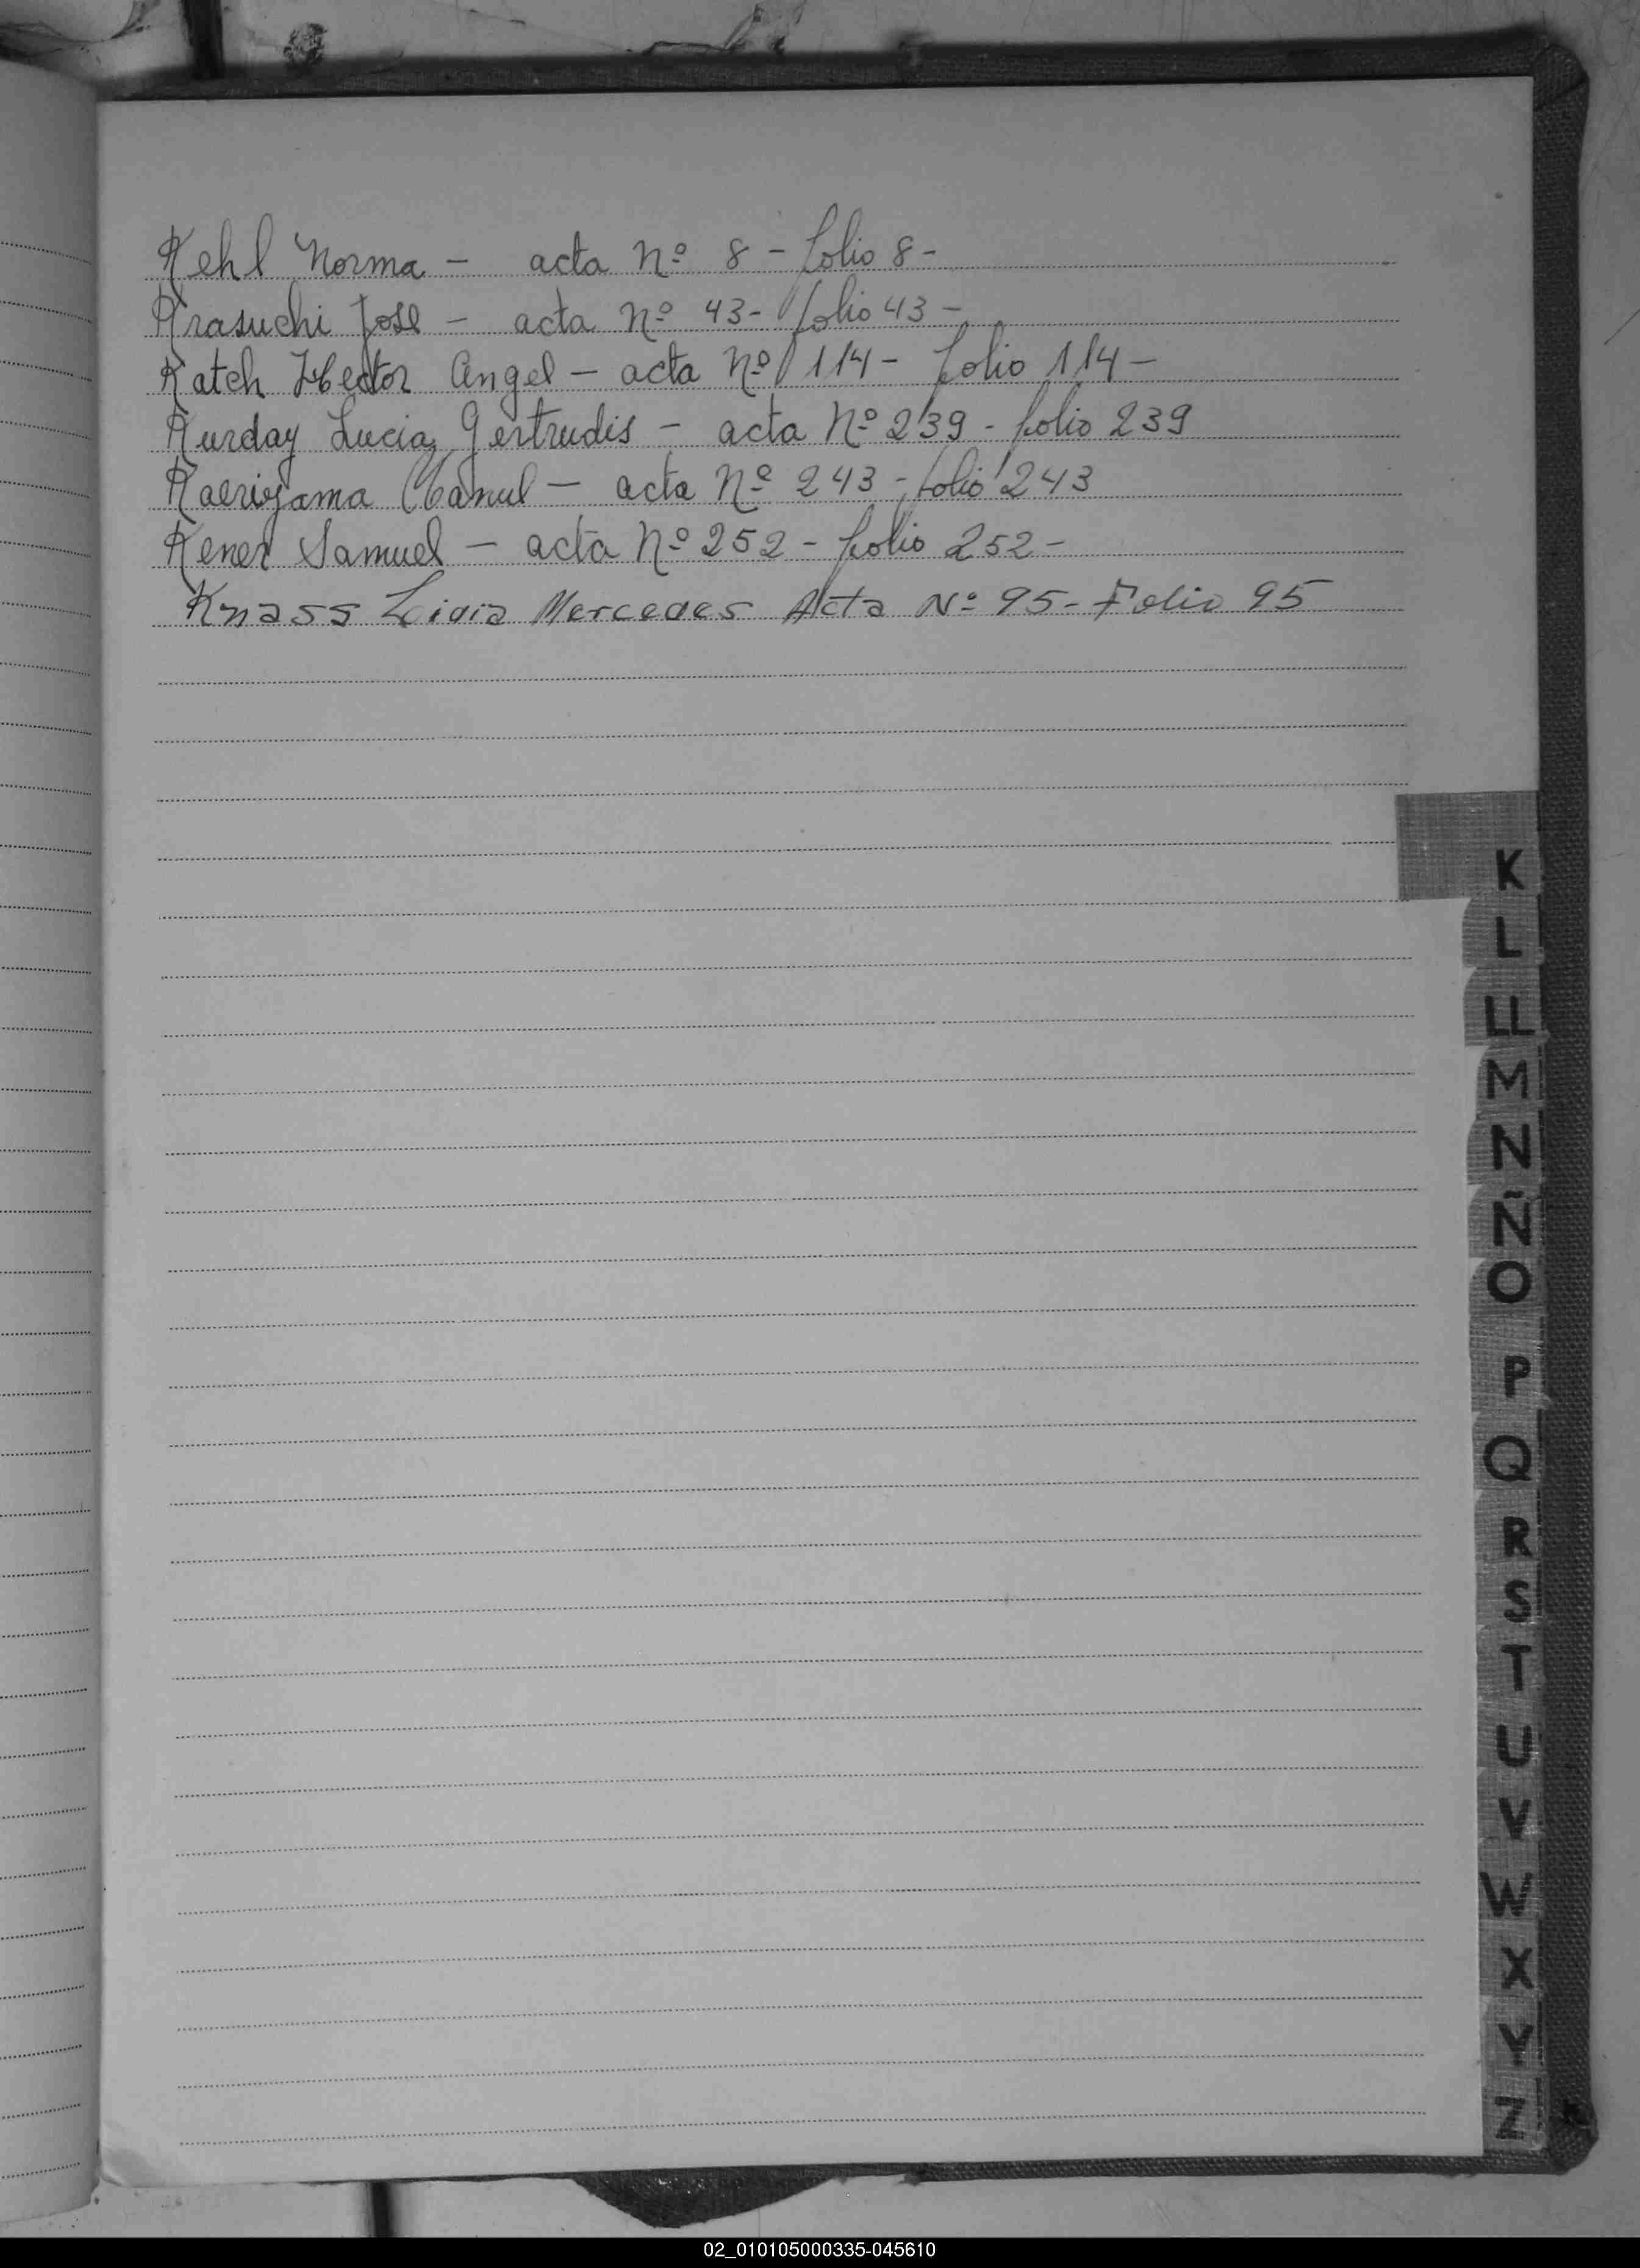 Kehl Norma - acta Nº 8 - folio 8 -
Krasuchi Jose - acta Nº 43 - folio 43 -
Katch Hector Angel - acta Nº 114 - folio 114 -
Kurday Lucia Gertrudis - acta Nº 239 - folio 239
Kaeriyama Manul - acta Nº 243 - folio 243
Kener Samuel - acta Nº 252 - folio 252 -
Knass Livia Mercedes Acta Nº 95 - Folio 95
K
L
LL
M
N
Ñ
O
P
Q
R
S
T
U
V
W
X
Y
Z
02_010105000335-045610